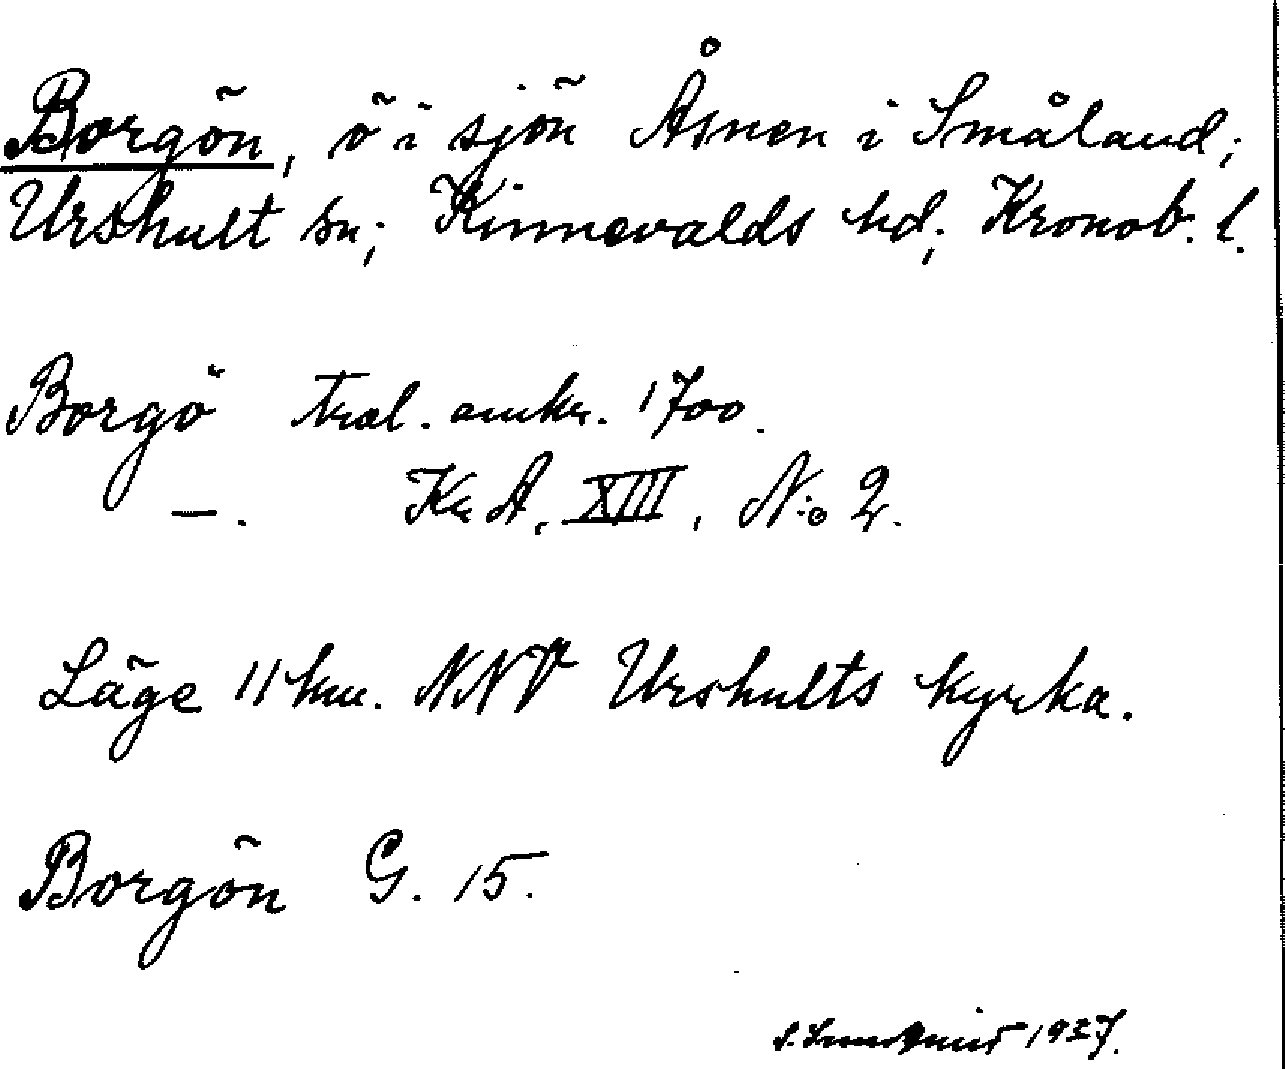 Borgön, ö i sjön Åsnen i Småland;
Urshult sn; Kinnevalds hd; Kronob. l.
Borgö tral. omkr. 1700.
—. Kr A, XIII, N:o 2.
Läge 11 km. NNV Urshults kyrka.
Borgön G. 15.
S. 1927.